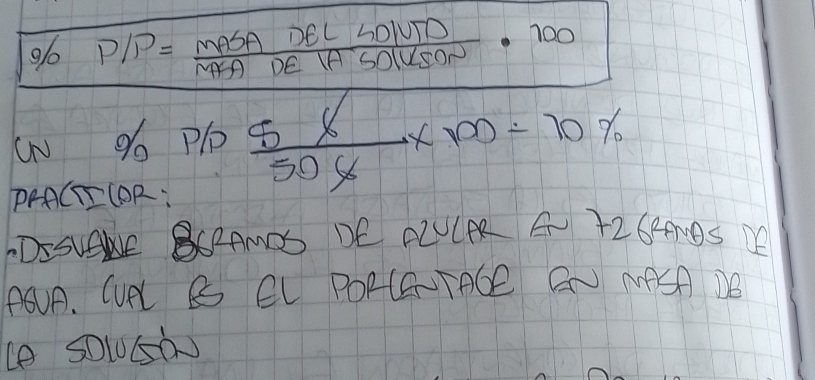 % P/P = MASA DEL SOLUTO / MASA DE LA SOLUSION • 100
UN % P/P 5 g / 50 g x 100 = 10 %
PRACTICAR:
• DISUELVE 8 GRAMOS DE AZUCAR EN 72 GRAMOS DE
AGUA. CUAL ES EL PORCENTAGE EN MASA DE
LA SOLUCIÓN